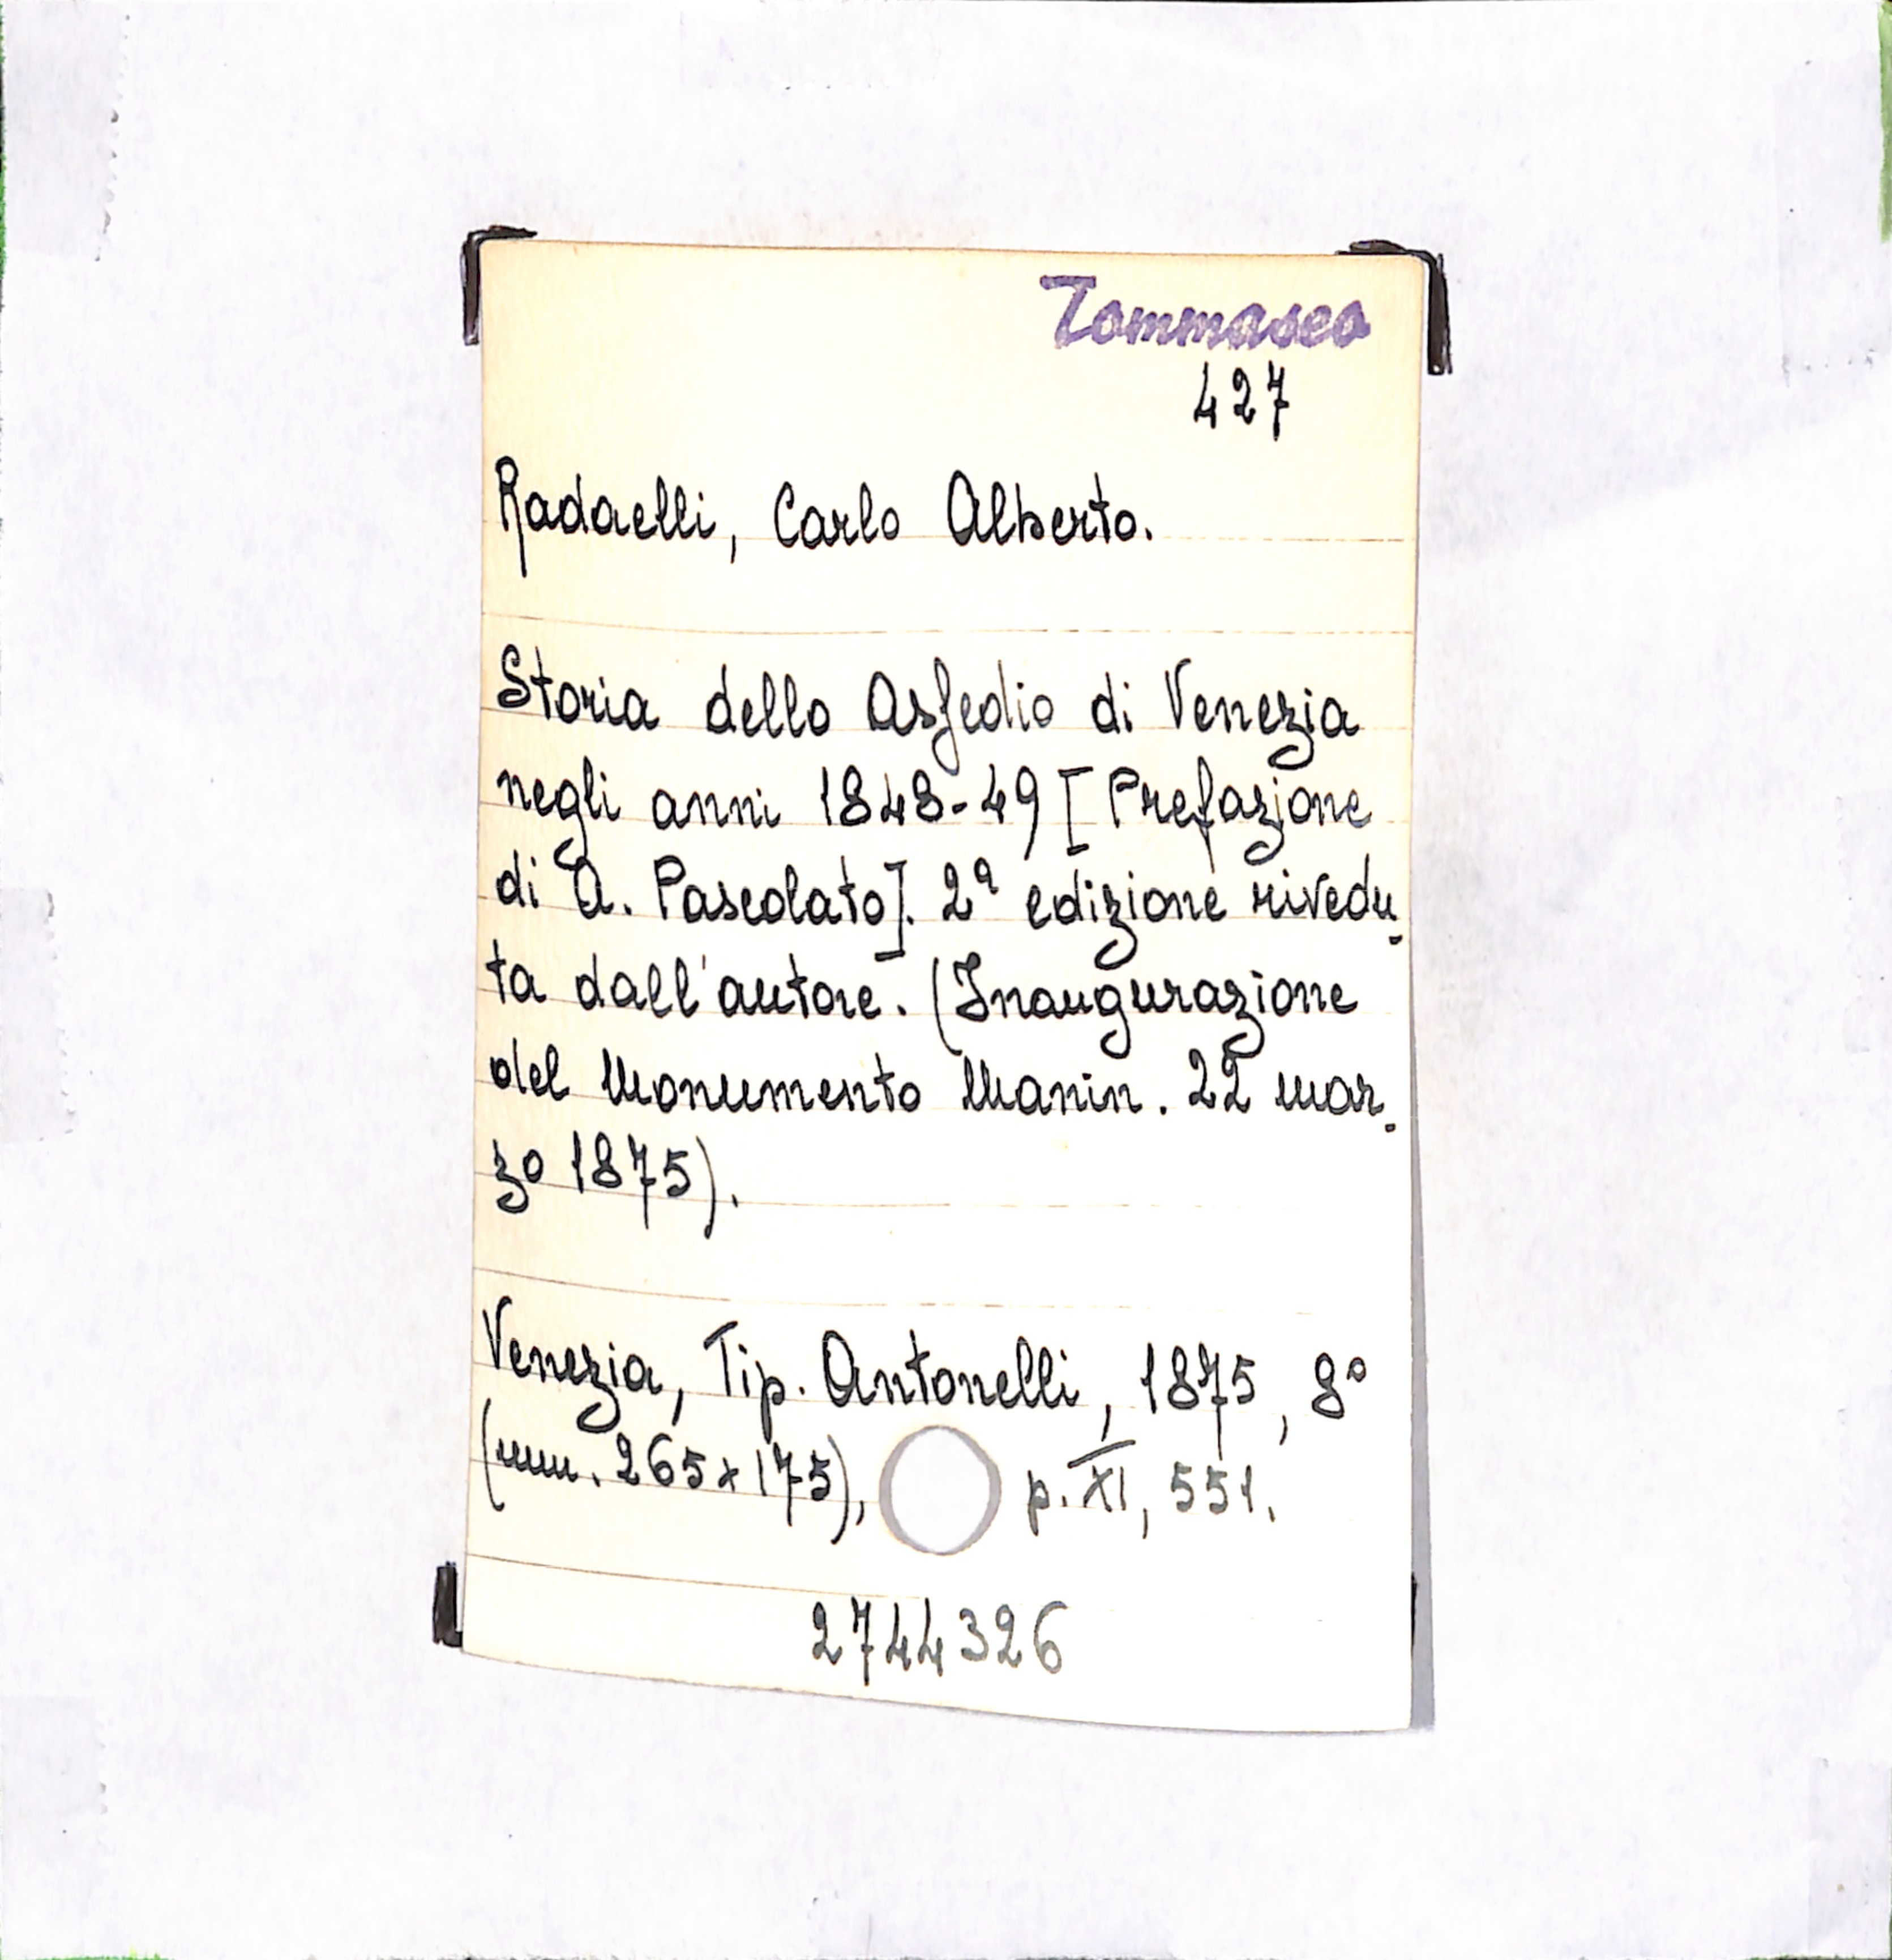 Tommaseo
427
Radaelli, Carlo Alberto.
Storia dello Assedio di Venezia
negli anni 1848-49 [Prefazione
di A. Pascolato]. 2ª edizione rivedu-
ta dall'autore. (Inaugurazione
del Monumento Manin. 22 mar-
zo 1875).
Venezia, Tip. Antonelli, 1875, 8º
(mm. 265x175), p. XI, 551.
2744326